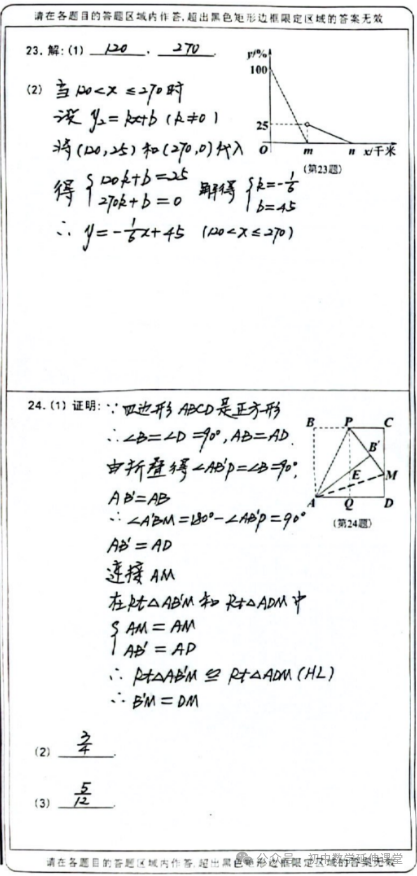 请在各题目的答题区域内作答,超出黑色矩形边框限定区域的答案无效
23. 解:(1) 120 . 270 .
y/%
100
25
O m n x/千米
(第23题)
(2) 当120<x≤270时
设 y₂=kx+b (k≠0)
将(120,25)和(270,0)代入
得 {120k+b=25 270k+b=0 解得 {k=-1/6 b=45
∴ y=-1/6x+45 (120<x≤270)
24. (1) 证明:∵四边形ABCD是正方形
∴∠B=∠D=90°,AB=AD.
由折叠得∠AB'P=∠B=90°,
AB'=AB
∴∠A'BM=180°-∠AB'P=90°
AB'=AD
连接AM
在Rt△AB'M和Rt△ADM中
{AM=AM
AB'=AD
∴ Rt△AB'M≌Rt△ADM(HL)
∴ B'M=DM
B P C
B'
E M
A Q D
(第24题)
(2) 3/4 .
(3) 5/12 .
公众号 · 初中数学延伸课堂
请在各题目的答题区域内作答,超出黑色矩形边框限定区域的答案无效